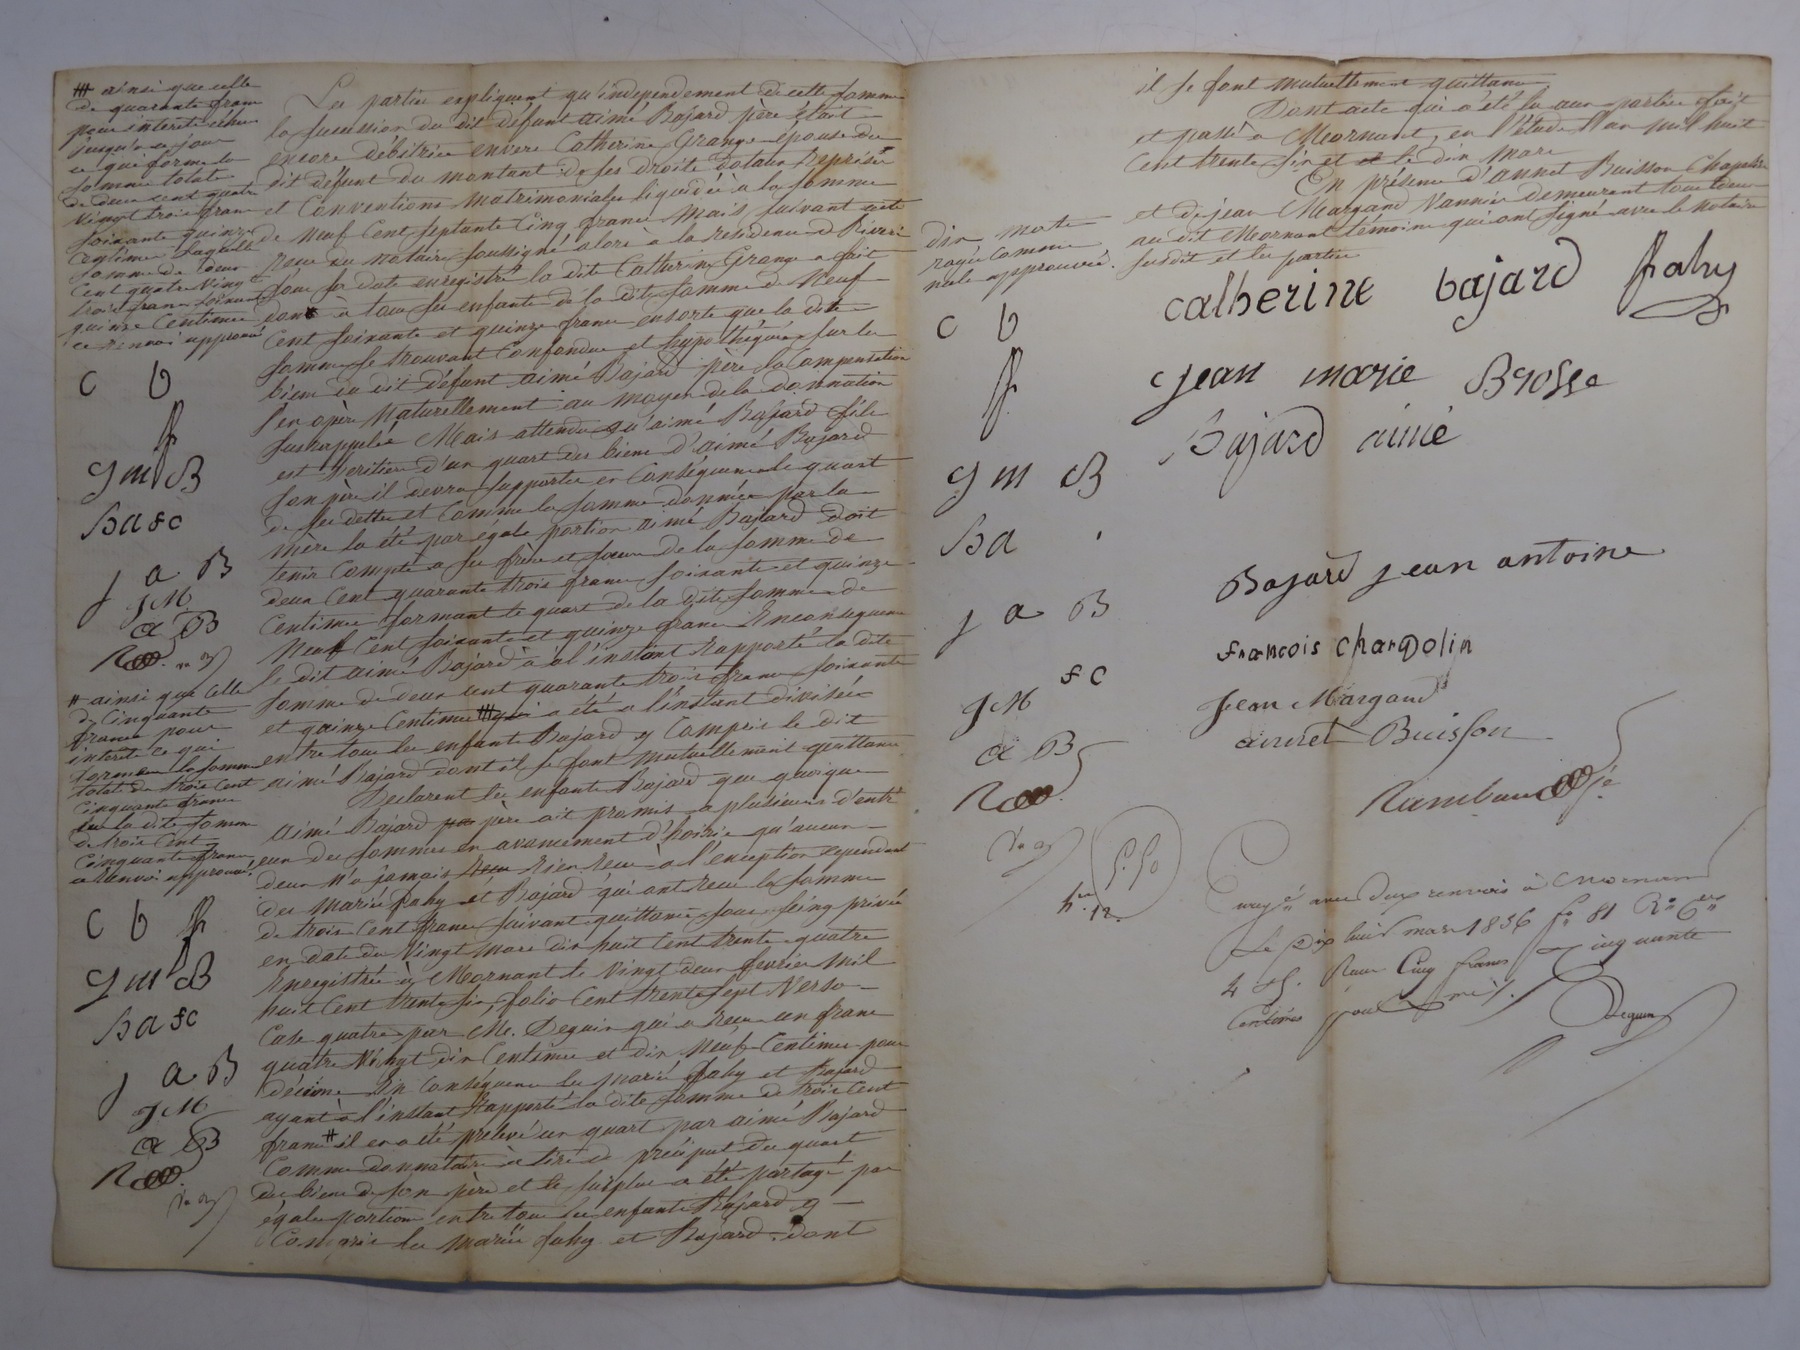 Les parties expliquent qu'independement de cette somme
la succession du dit défunt aimé Bajard père étant
encore débitrice envers Catherine Grange épouse du
dit défunt du montant de ses droits dotaux Reprises
et Conventions matrimoniales liquidée à la somme
de neuf Cent septante Cinq francs Mais suivant acte
recu du notaire soussigné alors à la residence de Riverie
sous sa date enregistré la dite Catherine Grange a fait
don à tous ses enfants de la dite somme de Neuf
Cent soixante et quinze francs ensorte que la dite
somme se trouvant Confondue et hypothéquée sur les
biens du dit défunt aimé Bajard père la compensation
s'en opère Naturellement au moyen de la donnation
susrappelée Mais attendu qu'aimé Bajard fils
est heritier d'un quart des biens d'aimé Bajard
son père il devra supporter en Conséquence le quart
de ses dettes et Comme la somme donnée par la
mère la été par égale portion aimé Bajard doit
tenir Compte à ses frères et sœurs de la somme de
deux Cent quarante trois francs soixante et quinze
Centimes formant le quart de la dite somme de
Neuf Cent soixante et quinze francs En conséquence
le dit aimé Bajard à à l'instant Rapporté la dite
somme de deux cent quarante trois francs soixante
et quinze Centimes # qui a été a l'instant divisée
entre tous les enfants Bajard y Compris le dit
aimé Bajard dont ils se font mutuellement quittance
Declarent les enfants Bajard que quoique
aimé Bajard père ait promis a plusieurs d'entr'
eux des sommes en avancement d'hoirie qu'aucun
deux N'a jamais Rien Recu à l'exception cependant
des Mariés fahy et Bajard qui ont recu la somme
de trois Cent francs suivant quittance sous seing privé
en date du Vingt Mars dix huit Cent trente quatre
Enregistrée à Mornant le Vingt deux fevrier Mil
huit Cent trente six, folio Cent trente sept Verso
Case quatre par Me. Deguin qui a Recu un franc
quatre Vingt dix Centimes et dix Neuf Centimes pour
décime En Conséquence les Mariés fahy et Bajard
ayant à l'instant Rapporté la dite somme de trois Cent
francs # il en a été prélevé un quart par aimé Bajard
Comme donnataire à titre de préciput du quart
des biens de son père et le surplus a été partagé par
égales portions entre tous les enfants Bajard y
Compris les Mariés fahy et Bajard dont
# ainsi que celle
de quarante francs
pour interets échus
jusqu'a ce jour
ce qui forme la
somme totale
de deux cent quatre
Vingt trois francs
soixante quinze
Centimes laquelle
somme de deux
Cent quatre Vingt
trois francs soixante
quinze Centimes
ce renvoi approuvé
C b
f
J M B
Ba fc
J a B
JM
a B
R
# ainsi que Celle
de Cinquante
francs pour
interets ce qui
forme la somme
total de trois Cent
Cinquante francs
sur la dite somme
de trois Cent
Cinquante francs
ce Renvoi approuvé
C b f
J M B
Ba fc
J a B
JM
a B
R
ils se font mutuellement quittance
Dont acte qui a été lu aux parties fait
et passé à Mornant, en l'étude l'an mil huit
Cent trente six et le dix Mars
En présence d'annet Buisson Chapelier
et de jean Margand Vannier demeurant tous deux
au dit Mornant témoins qui ont signé avec le Notaire
susdit et les parties
dix mots
rayés comme
nuls approuvés.
catherine bajard fahy
jean marie Brosse
Bajard aimé
Bajard jean antoine
francois chardolin
jean Margand
annet Buisson
C b
f
J M B
Ba
J a B
fc
JM
a B
R
5.50
12
Enregé avec deux renvois à Mornant
Le Dix huit mars 1836 fo 81 Ro Ces
4 et 5. Recu Cinq francs Cinquante
Centimes
Deguin